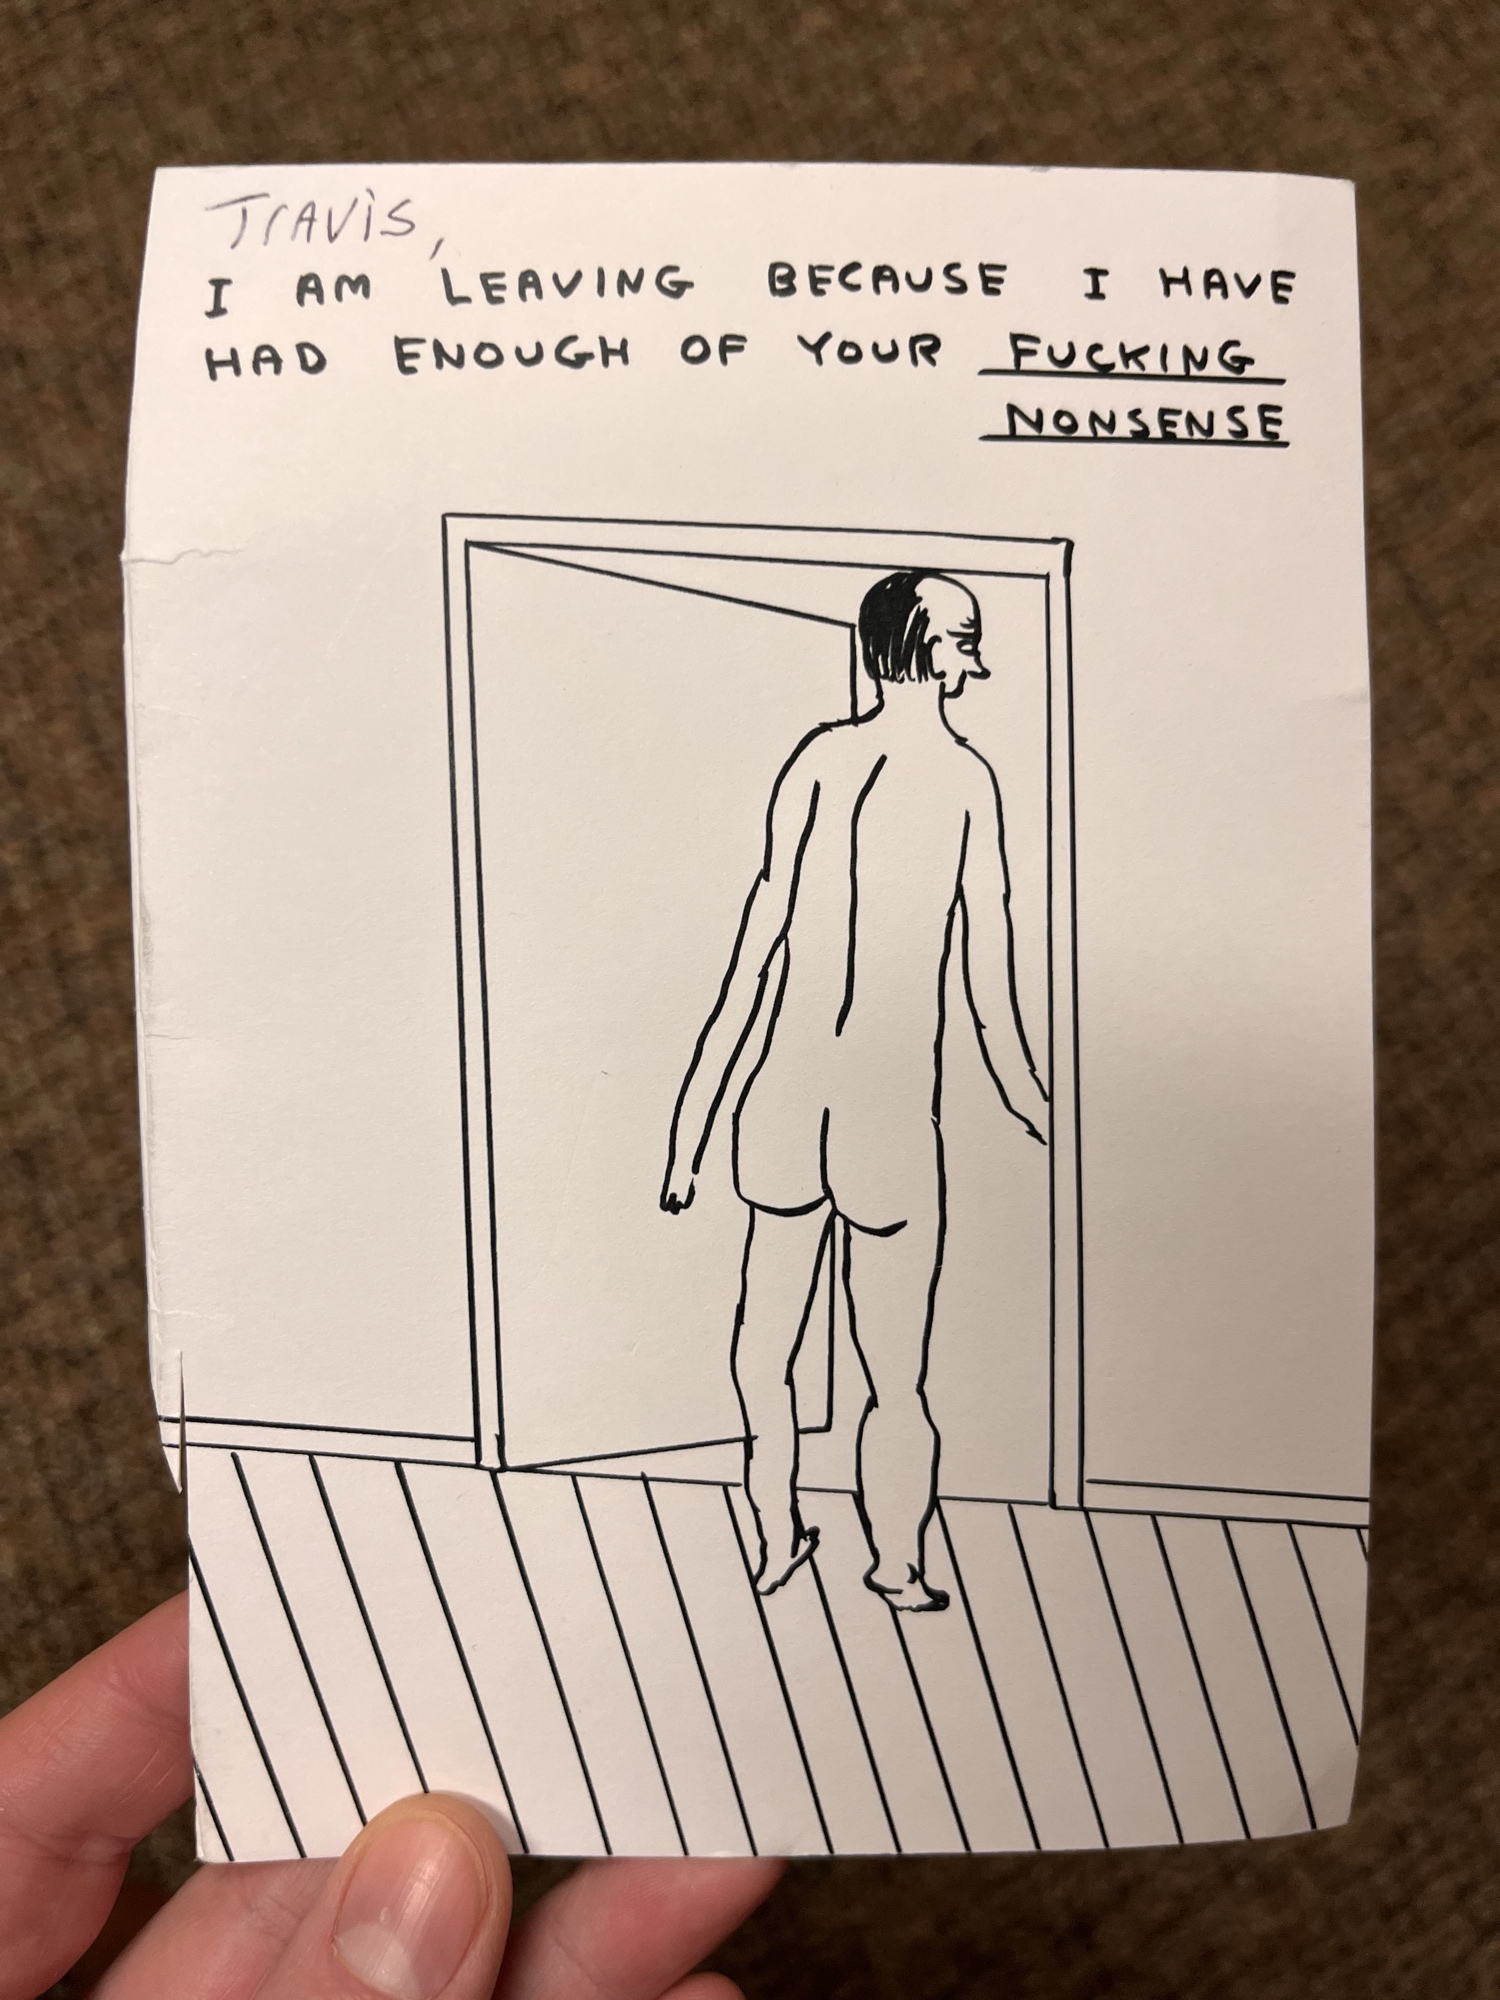 Travis,
I AM LEAVING BECAUSE I HAVE
HAD ENOUGH OF YOUR FUCKING
NONSENSE